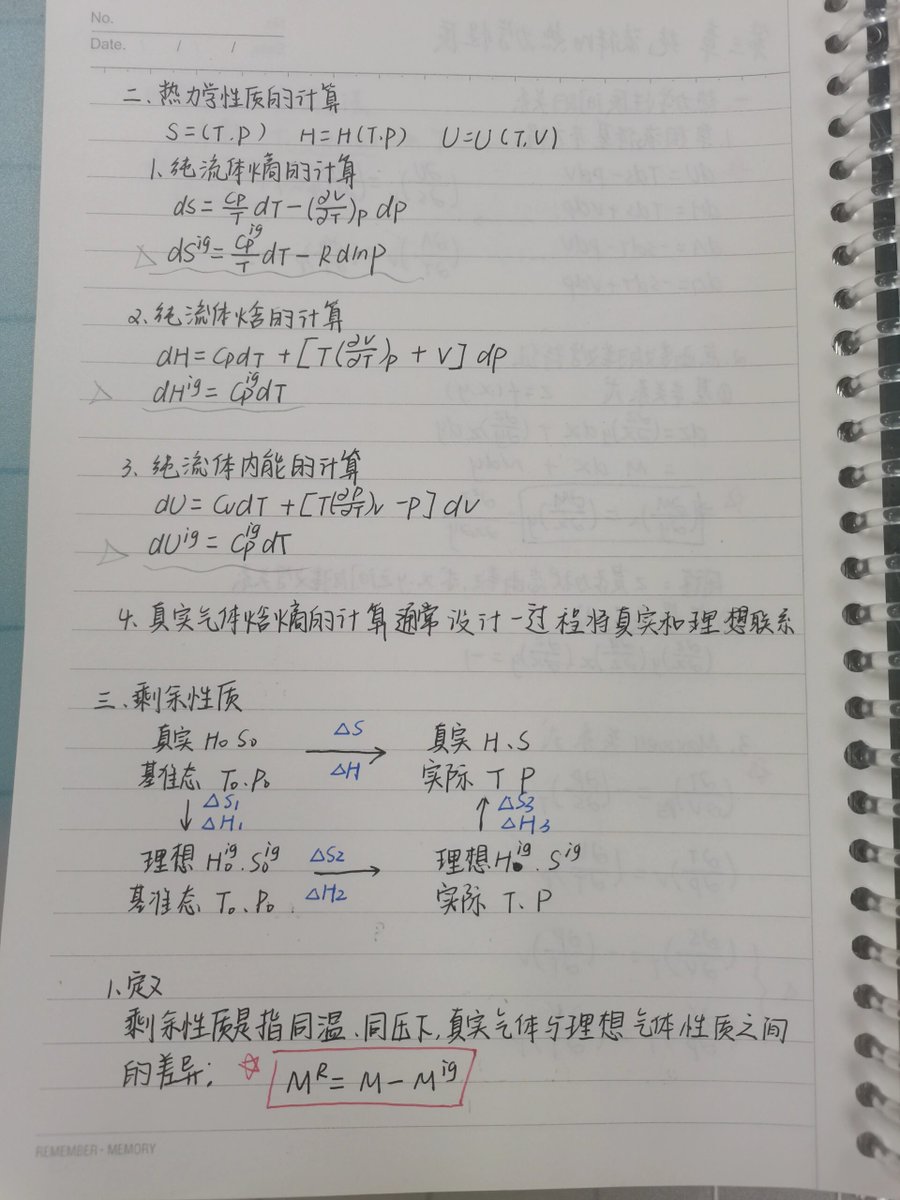 No.
Date. / /
二、热力学性质的计算
S=(T.P) H=H(T.P) U=U(T,V)
1、纯流体熵的计算
dS = Cp/T dT − (∂V/∂T)p dp
dS^ig = Cp^ig/T dT − R dlnp
2、纯流体焓的计算
dH = CpdT + [T(∂V/∂T)p + V] dp
dH^ig = Cp^ig dT
3、纯流体内能的计算
dU = CvdT + [T(∂P/∂T)v − P] dv
dU^ig = Cp^ig dT
4. 真实气体焓熵的计算通常设计一过程将真实和理想联系
三、剩余性质
真实 H₀ S₀ ΔS 真实 H、S
基准态 T₀、P₀ ΔH 实际 T P
↓ ΔS₁ ↑ ΔS₃
ΔH₁ ΔH₃
理想 H₀^ig. S₀^ig ΔS₂ 理想 H^ig. S^ig
基准态 T₀、P₀ ΔH₂ 实际 T、P
1、定义
剩余性质是指同温、同压下,真实气体与理想气体性质之间
的差异; M^R = M − M^ig
REMEMBER · MEMORY